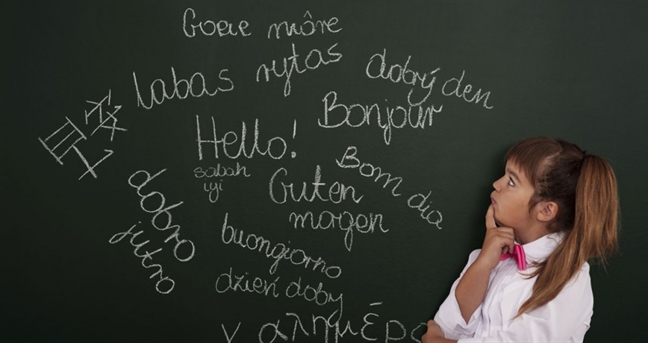 Goeie môre
labas rytas
dobrý den
Bonjour
Hello!
sabah
iyi
Bom dia
Guten
morgen
dobro
jutro
buongiorno
dzień dobry
αλημέρα